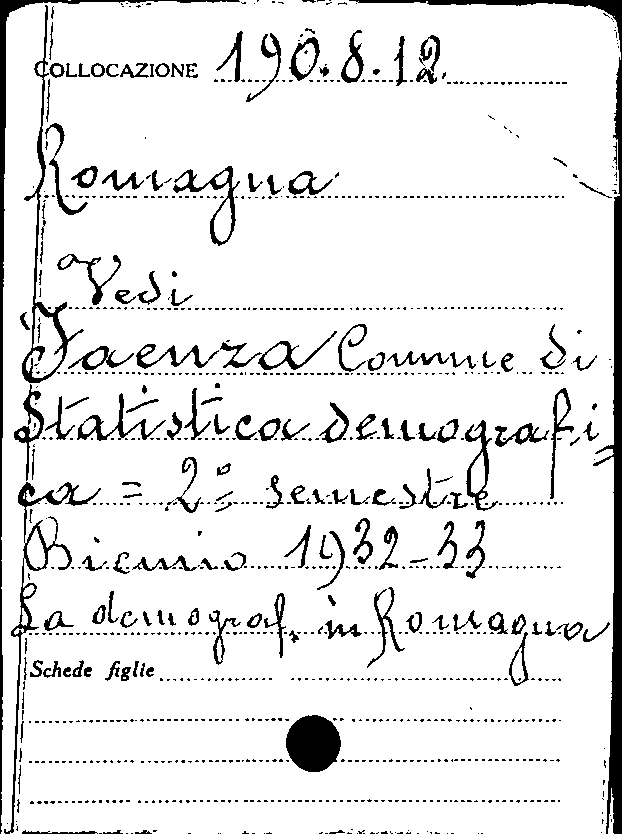 COLLOCAZIONE 190.8.12.
Romagna
Vedi
Faenza Comune di
Statistica demografi=
ca = 2° semestre
Biennio 1932-33
La demograf. in Romagna
Schede figlie